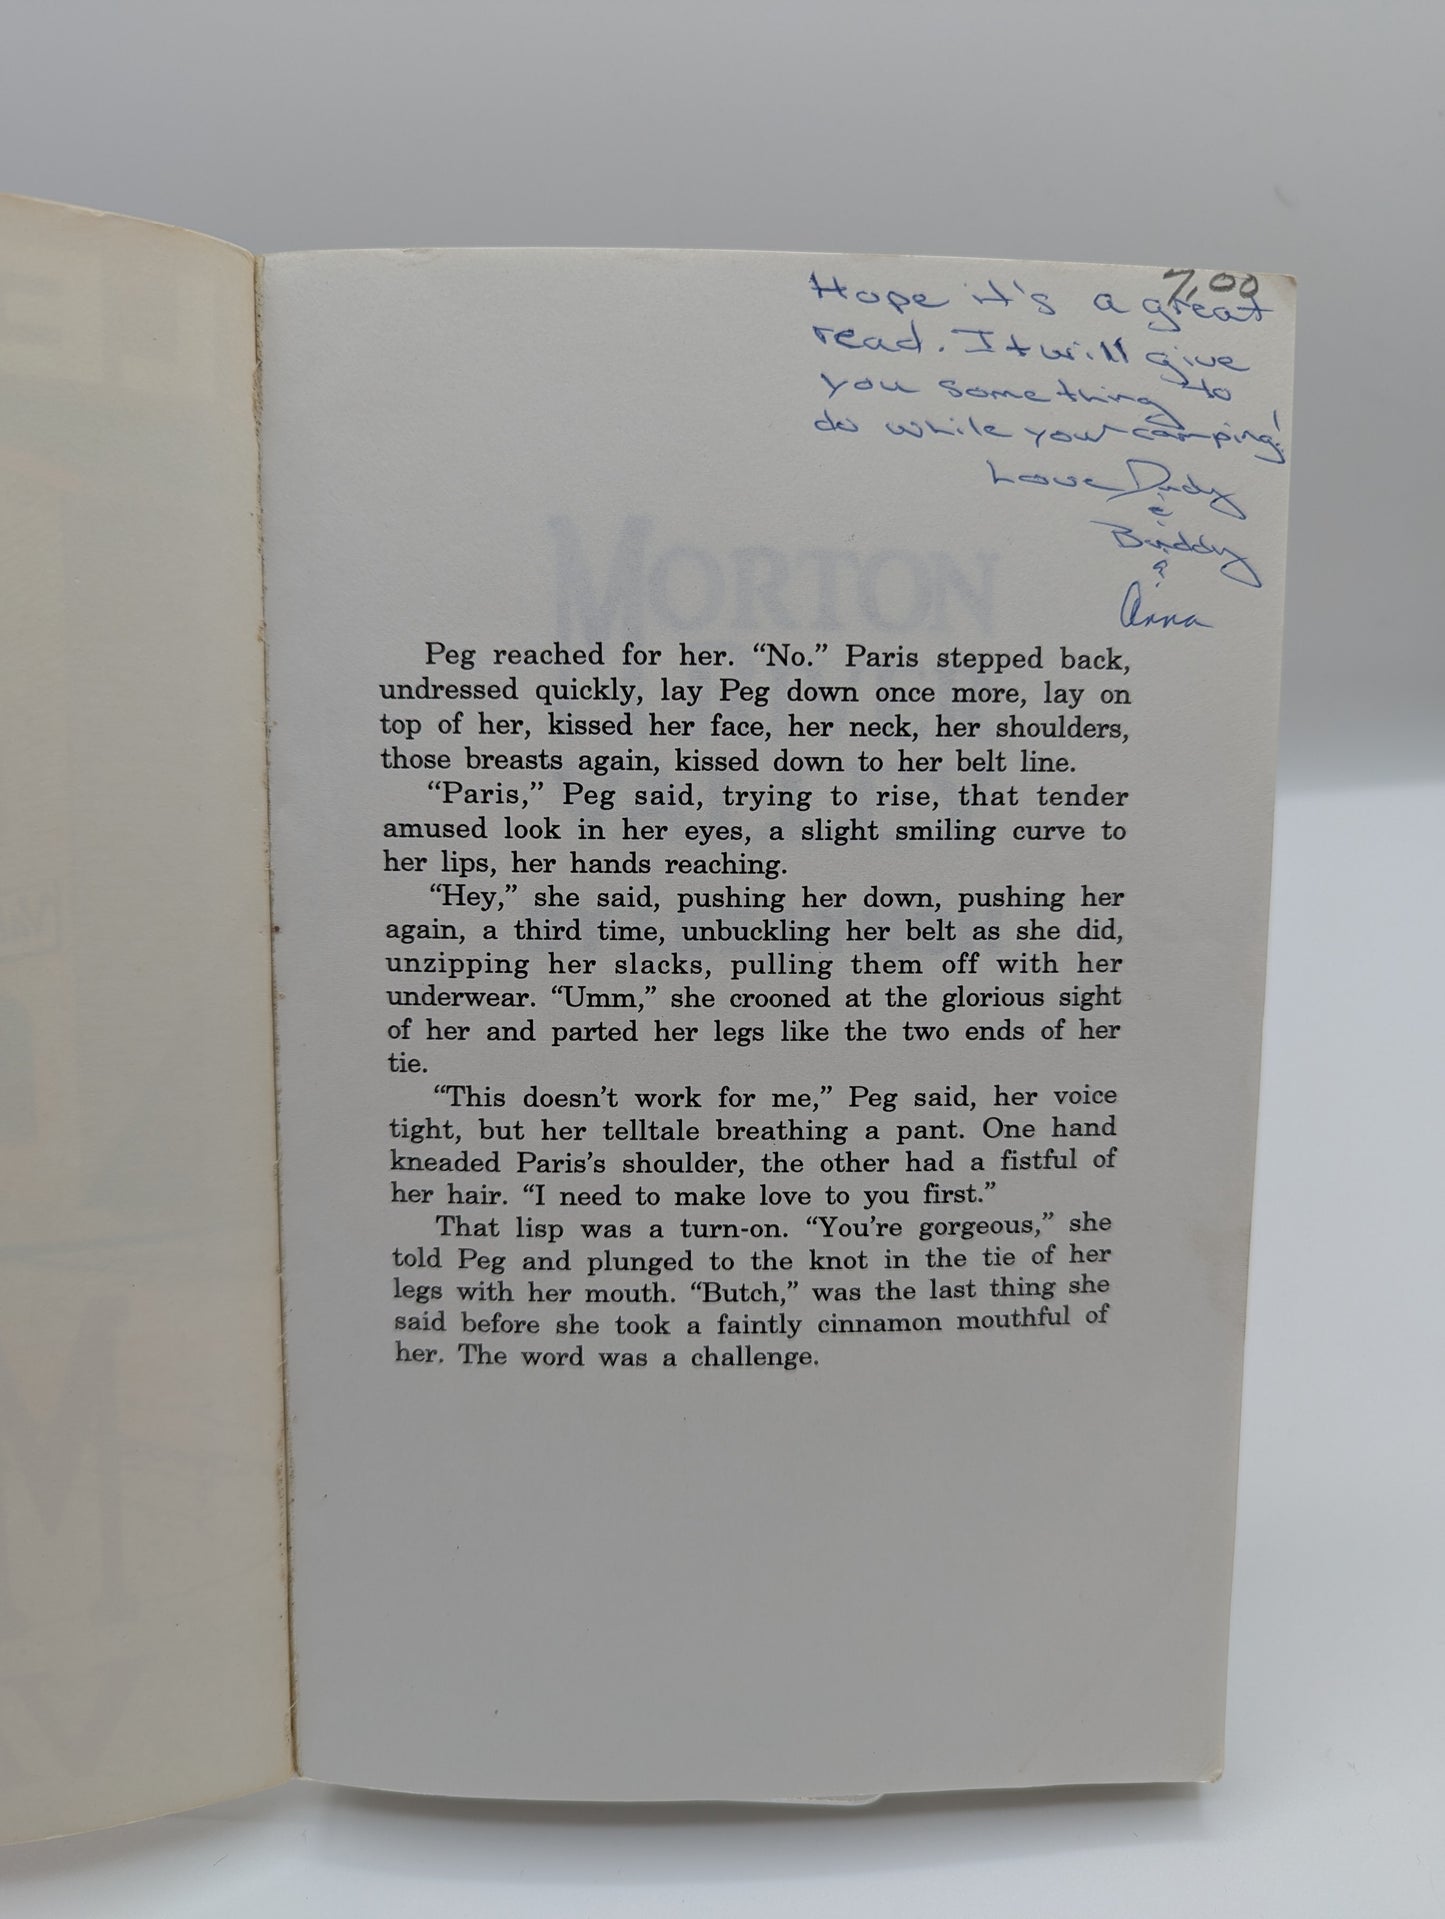 7.00
Hope it's a great
read. It will give
you something to
do while your camping!
Love Dudy
&
Buddy
&
Anna
MORTON
Peg reached for her. “No.” Paris stepped back,
undressed quickly, lay Peg down once more, lay on
top of her, kissed her face, her neck, her shoulders,
those breasts again, kissed down to her belt line.
“Paris,” Peg said, trying to rise, that tender
amused look in her eyes, a slight smiling curve to
her lips, her hands reaching.
“Hey,” she said, pushing her down, pushing her
again, a third time, unbuckling her belt as she did,
unzipping her slacks, pulling them off with her
underwear. “Umm,” she crooned at the glorious sight
of her and parted her legs like the two ends of her
tie.
“This doesn’t work for me,” Peg said, her voice
tight, but her telltale breathing a pant. One hand
kneaded Paris’s shoulder, the other had a fistful of
her hair. “I need to make love to you first.”
That lisp was a turn-on. “You’re gorgeous,” she
told Peg and plunged to the knot in the tie of her
legs with her mouth. “Butch,” was the last thing she
said before she took a faintly cinnamon mouthful of
her. The word was a challenge.